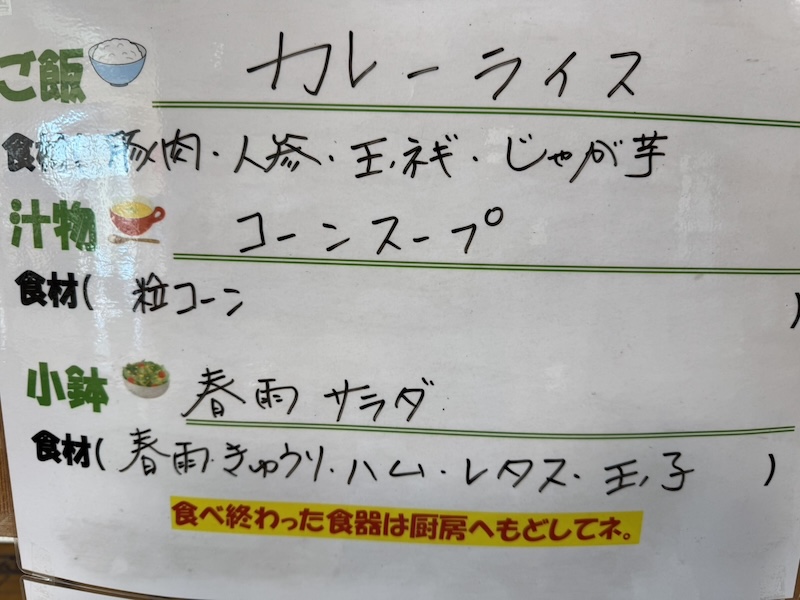 ご飯 カレーライス
食材 豚肉・人参・玉ネギ・じゃが芋
汁物 コーンスープ
食材( 粒コーン )
小鉢 春雨サラダ
食材( 春雨・きゅうり・ハム・レタス・玉子 )
食べ終わった食器は厨房へもどしてネ。